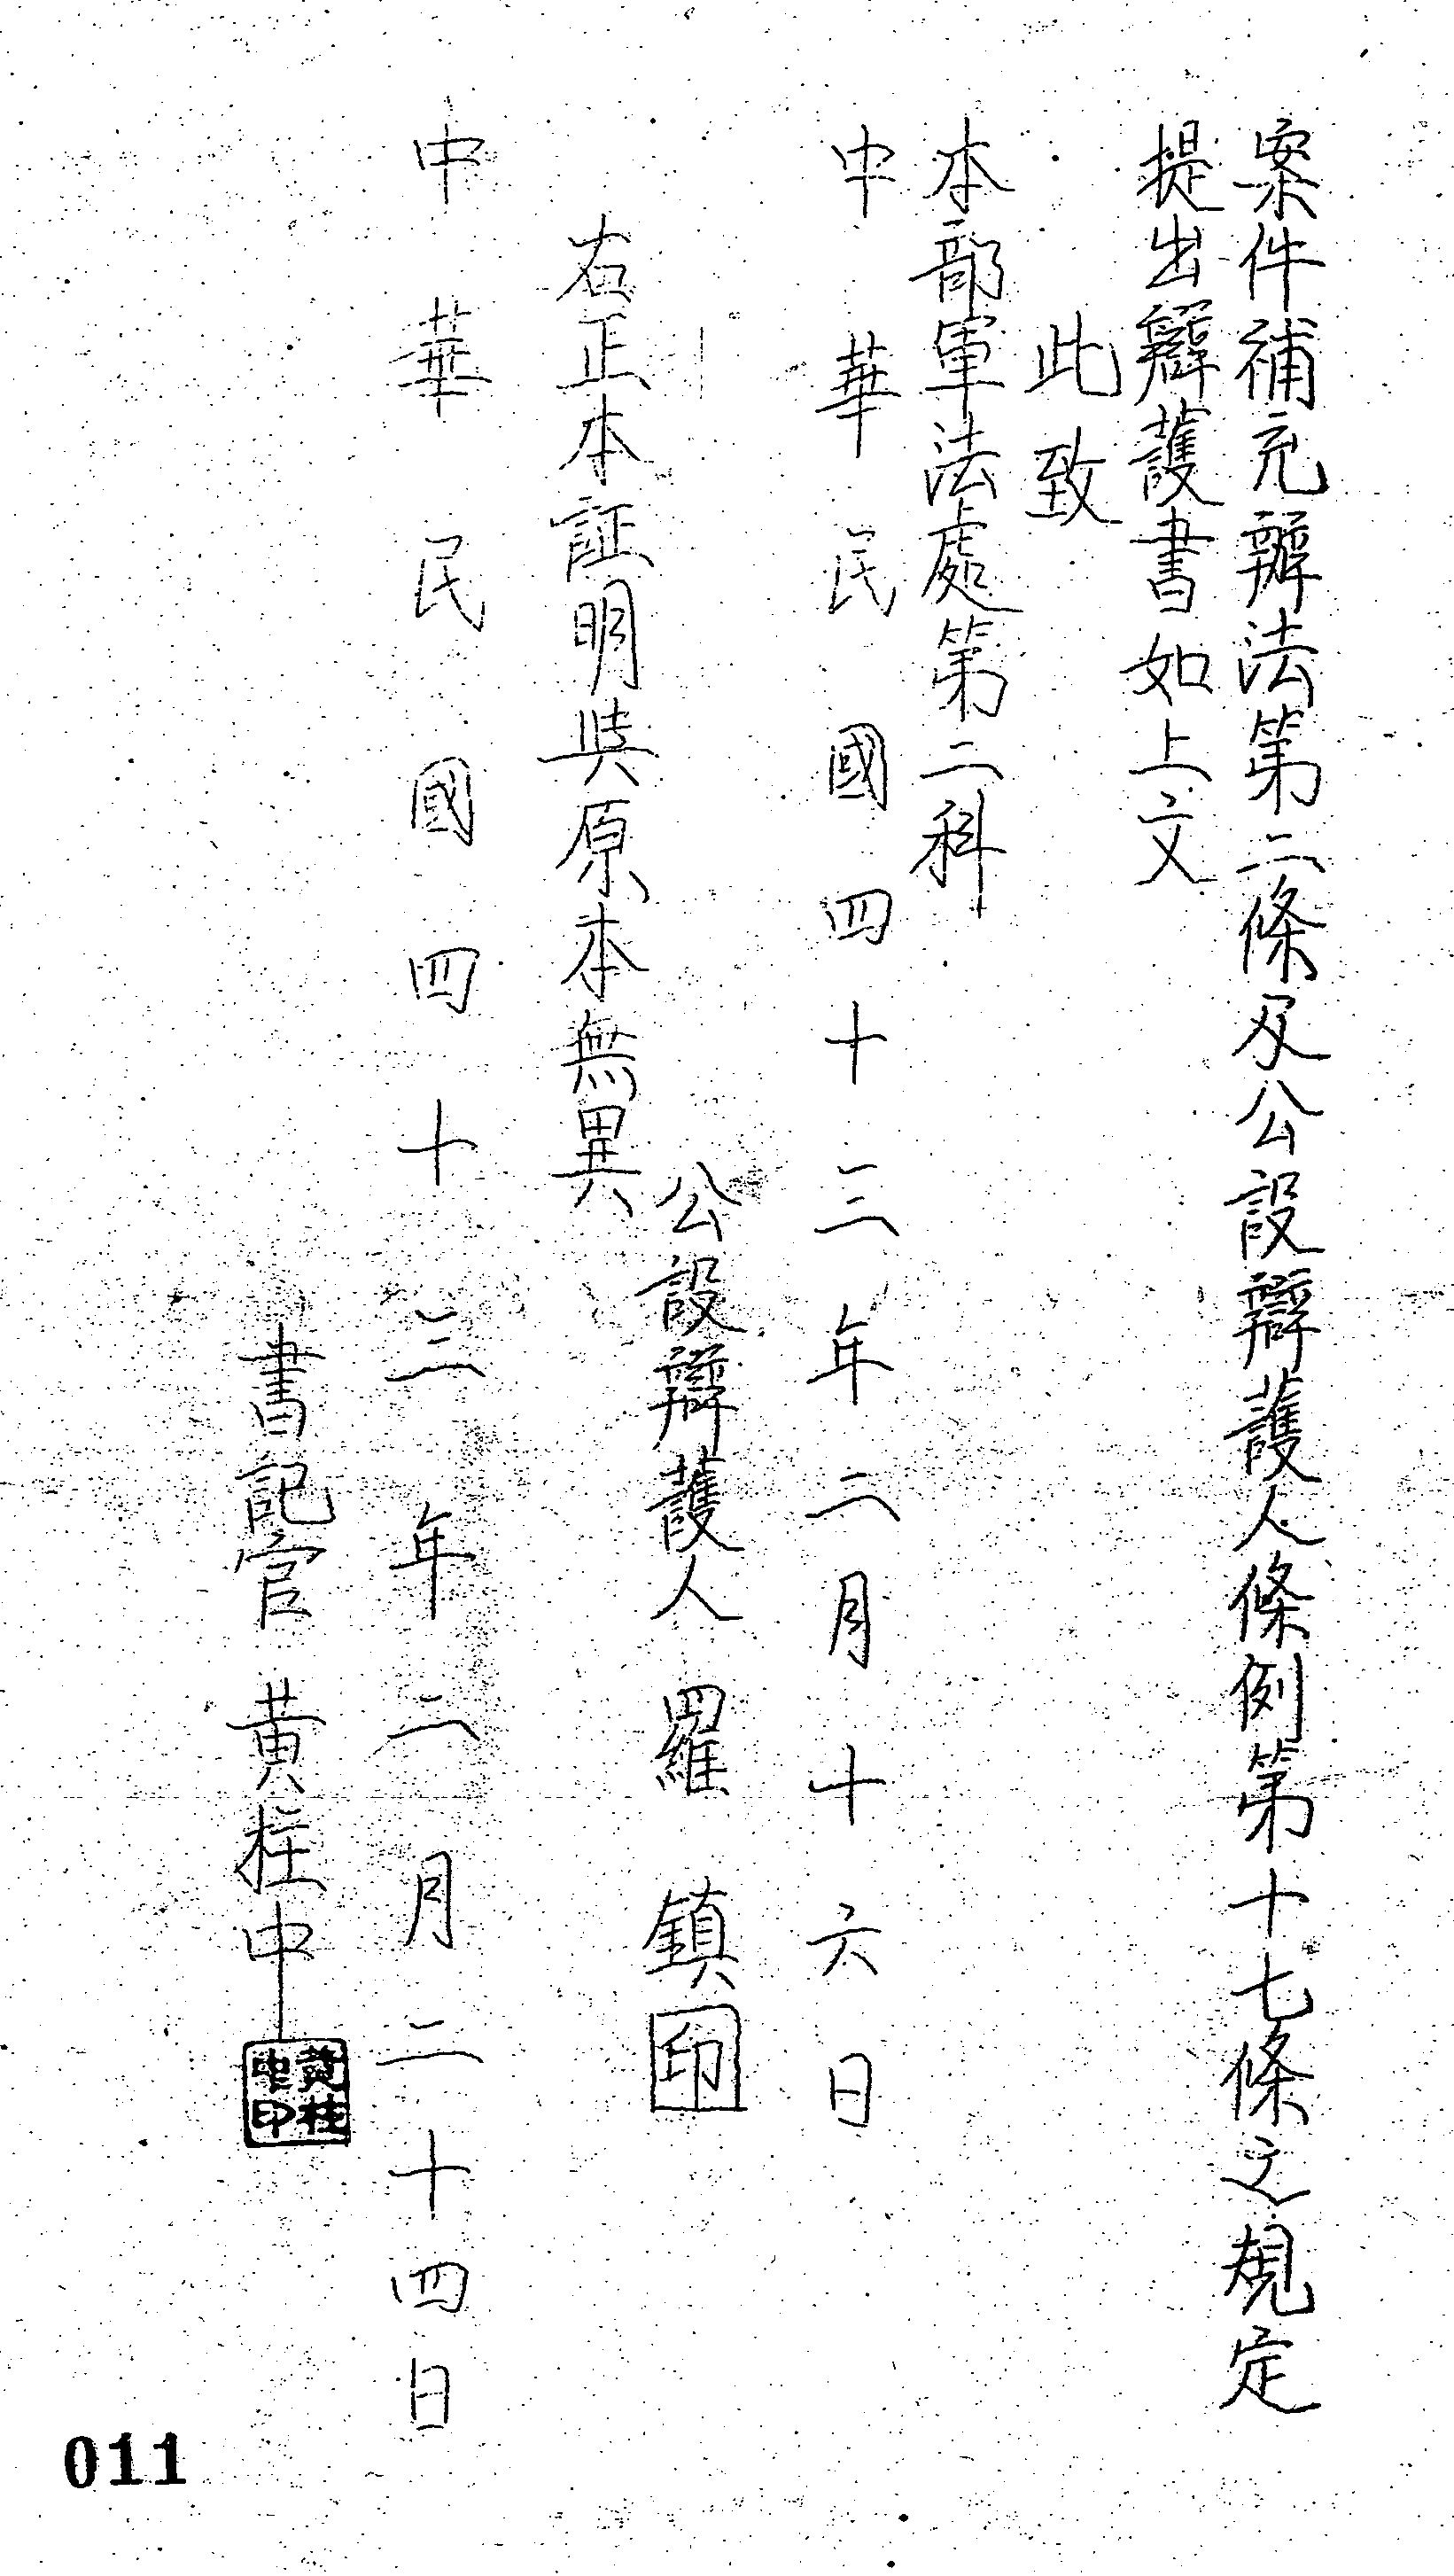 案件補充辦法第二條及公設辯護人條例第十七條之規定
提出辯護書如上文
此致
本部軍法處第二科
中華民國四十三年二月十六日
公設辯護人 羅 鎮 印
右正本証明與原本無異
中華民國四十三年二月二十四日
書記官 黃柱中
黃柱中印
011